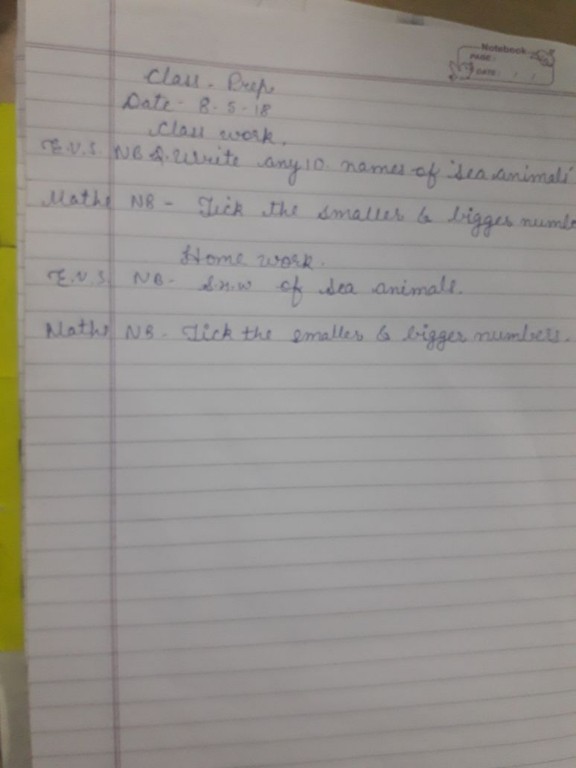 Notebook
PAGE:
DATE: / /
Class - Prep
Date - 8-5-18
Class work.
E.V.S. NB Q. Write any 10 names of sea animals
Maths NB - Tick the smaller & bigger numbe
Home work.
E.V.S. NB - S.n.w of sea animals.
Maths NB - Tick the smaller & bigger numbers.